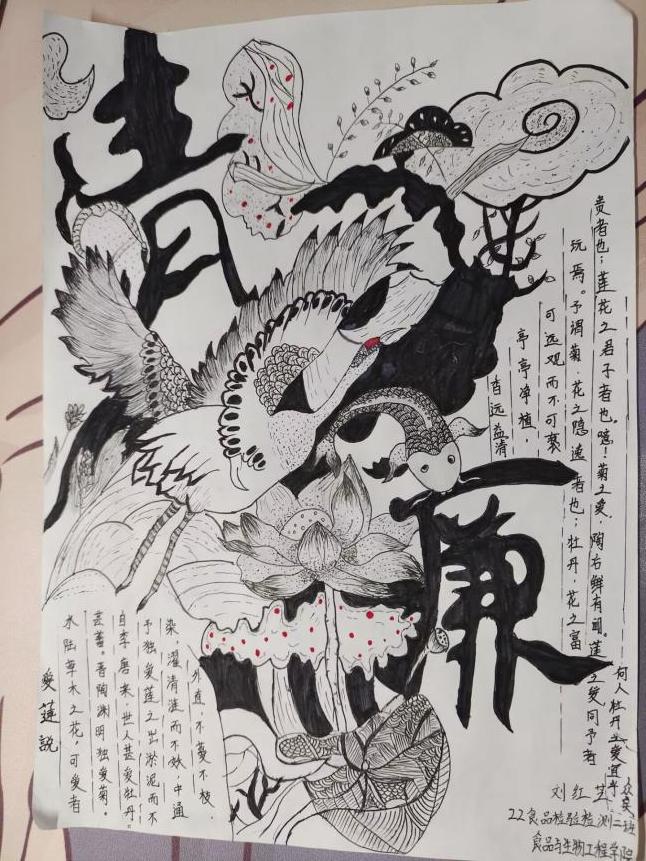 清
廉
愛莲說
水陆草木之花,可爱者
甚蕃。晋陶渊明独爱菊。
自李唐来,世人甚爱牡丹。
予独爱莲之出淤泥而不
染,濯清涟而不妖,中通
外直,不蔓不枝,
香远益清
亭亭净植,
可远观而不可亵
玩焉。予谓菊,花之隐逸者也;牡丹,花之富
贵者也;莲花之君子者也。噫!菊之爱,陶右鲜有闻。莲之爱同予者
何人牡丹之爱宜乎
众矣
刘红
22食品检验检测二班
食品与生物工程学院